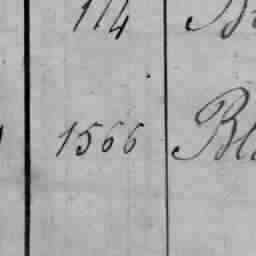 114
1566 Bl